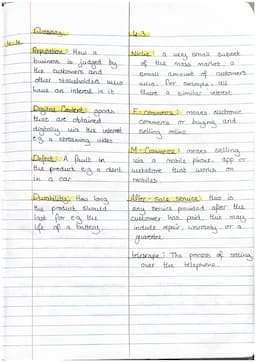 Glossary
4.4
Reputation: How a
business is judged by
the customers and
other stakeholders who
have an interest in it
Digital Content: goods
that are obtained
digitally via the internet
e.g a streaming video
Defect: A fault in
the product e.g a dent
in a car
Durability: How long
the product should
last for e.g the
life of a battery.
4.3
Niche: a very small subset
of the mass market, a
small amount of customers
who, for example, all
share a similar interest
E-commerce: means electronic
commerce or buying and
selling online
M-Commerce: means selling
via a mobile phone, app or
webstore that works on
mobiles
After-sale service: this is
any service provided after the
customer has paid, this may
include repair, warranty, or a
guarantee.
telesales: The process of selling
over the telephone.